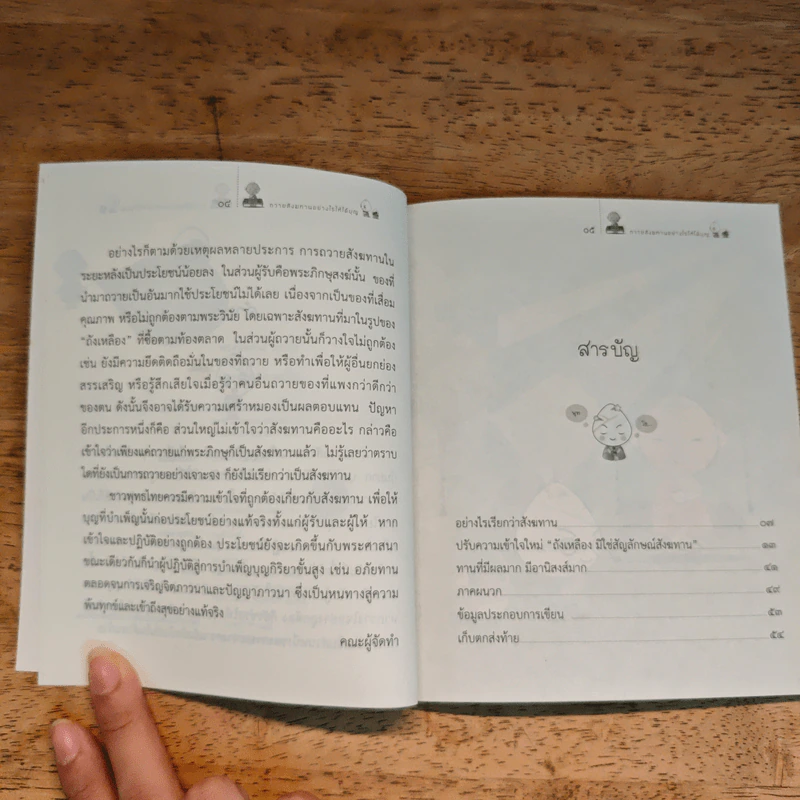 ๐๔
ถวายสังฆทานอย่างไรให้ได้บุญ
อย่างไรก็ตามด้วยเหตุผลหลายประการ การถวายสังฆทานใน
ระยะหลังเป็นประโยชน์น้อยลง ในส่วนผู้รับคือพระภิกษุสงฆ์นั้น ของที่
นำมาถวายเป็นอันมากใช้ประโยชน์ไม่ได้เลย เนื่องจากเป็นของที่เสื่อม
คุณภาพ หรือไม่ถูกต้องตามพระวินัย โดยเฉพาะสังฆทานที่มาในรูปของ
“ถังเหลือง” ที่ซื้อตามท้องตลาด ในส่วนผู้ถวายนั้นก็วางใจไม่ถูกต้อง
เช่น ยังมีความยึดติดถือมั่นในของที่ถวาย หรือทำเพื่อให้ผู้อื่นยกย่อง
สรรเสริญ หรือรู้สึกเสียใจเมื่อรู้ว่าคนอื่นถวายของที่แพงกว่าดีกว่า
ของตน ดังนั้นจึงอาจได้รับความเศร้าหมองเป็นผลตอบแทน ปัญหา
อีกประการหนึ่งก็คือ ส่วนใหญ่ไม่เข้าใจว่าสังฆทานคืออะไร กล่าวคือ
เข้าใจว่าเพียงแค่ถวายแก่พระภิกษุก็เป็นสังฆทานแล้ว ไม่รู้เลยว่าตราบ
ใดที่ยังเป็นการถวายอย่างเจาะจง ก็ยังไม่เรียกว่าเป็นสังฆทาน
ชาวพุทธไทยควรมีความเข้าใจที่ถูกต้องเกี่ยวกับสังฆทาน เพื่อให้
บุญที่บำเพ็ญนั้นก่อประโยชน์อย่างแท้จริงทั้งแก่ผู้รับและผู้ให้ หาก
เข้าใจและปฏิบัติอย่างถูกต้อง ประโยชน์ยังจะเกิดขึ้นกับพระศาสนา
ขณะเดียวกันก็นำผู้ปฏิบัติสู่การบำเพ็ญบุญกิริยาขั้นสูง เช่น อภัยทาน
ตลอดจนการเจริญจิตภาวนาและปัญญาภาวนา ซึ่งเป็นหนทางสู่ความ
พ้นทุกข์และเข้าถึงสุขอย่างแท้จริง
คณะผู้จัดทำ
๐๕
ถวายสังฆทานอย่างไรให้ได้บุญ
สารบัญ
พุท
โธ
อย่างไรเรียกว่าสังฆทาน ๐๗
ปรับความเข้าใจใหม่ “ถังเหลือง มิใช่สัญลักษณ์สังฆทาน” ๑๓
ทานที่มีผลมาก มีอานิสงส์มาก ๔๑
ภาคผนวก ๔๙
ข้อมูลประกอบการเขียน ๕๓
เก็บตกส่งท้าย ๕๔